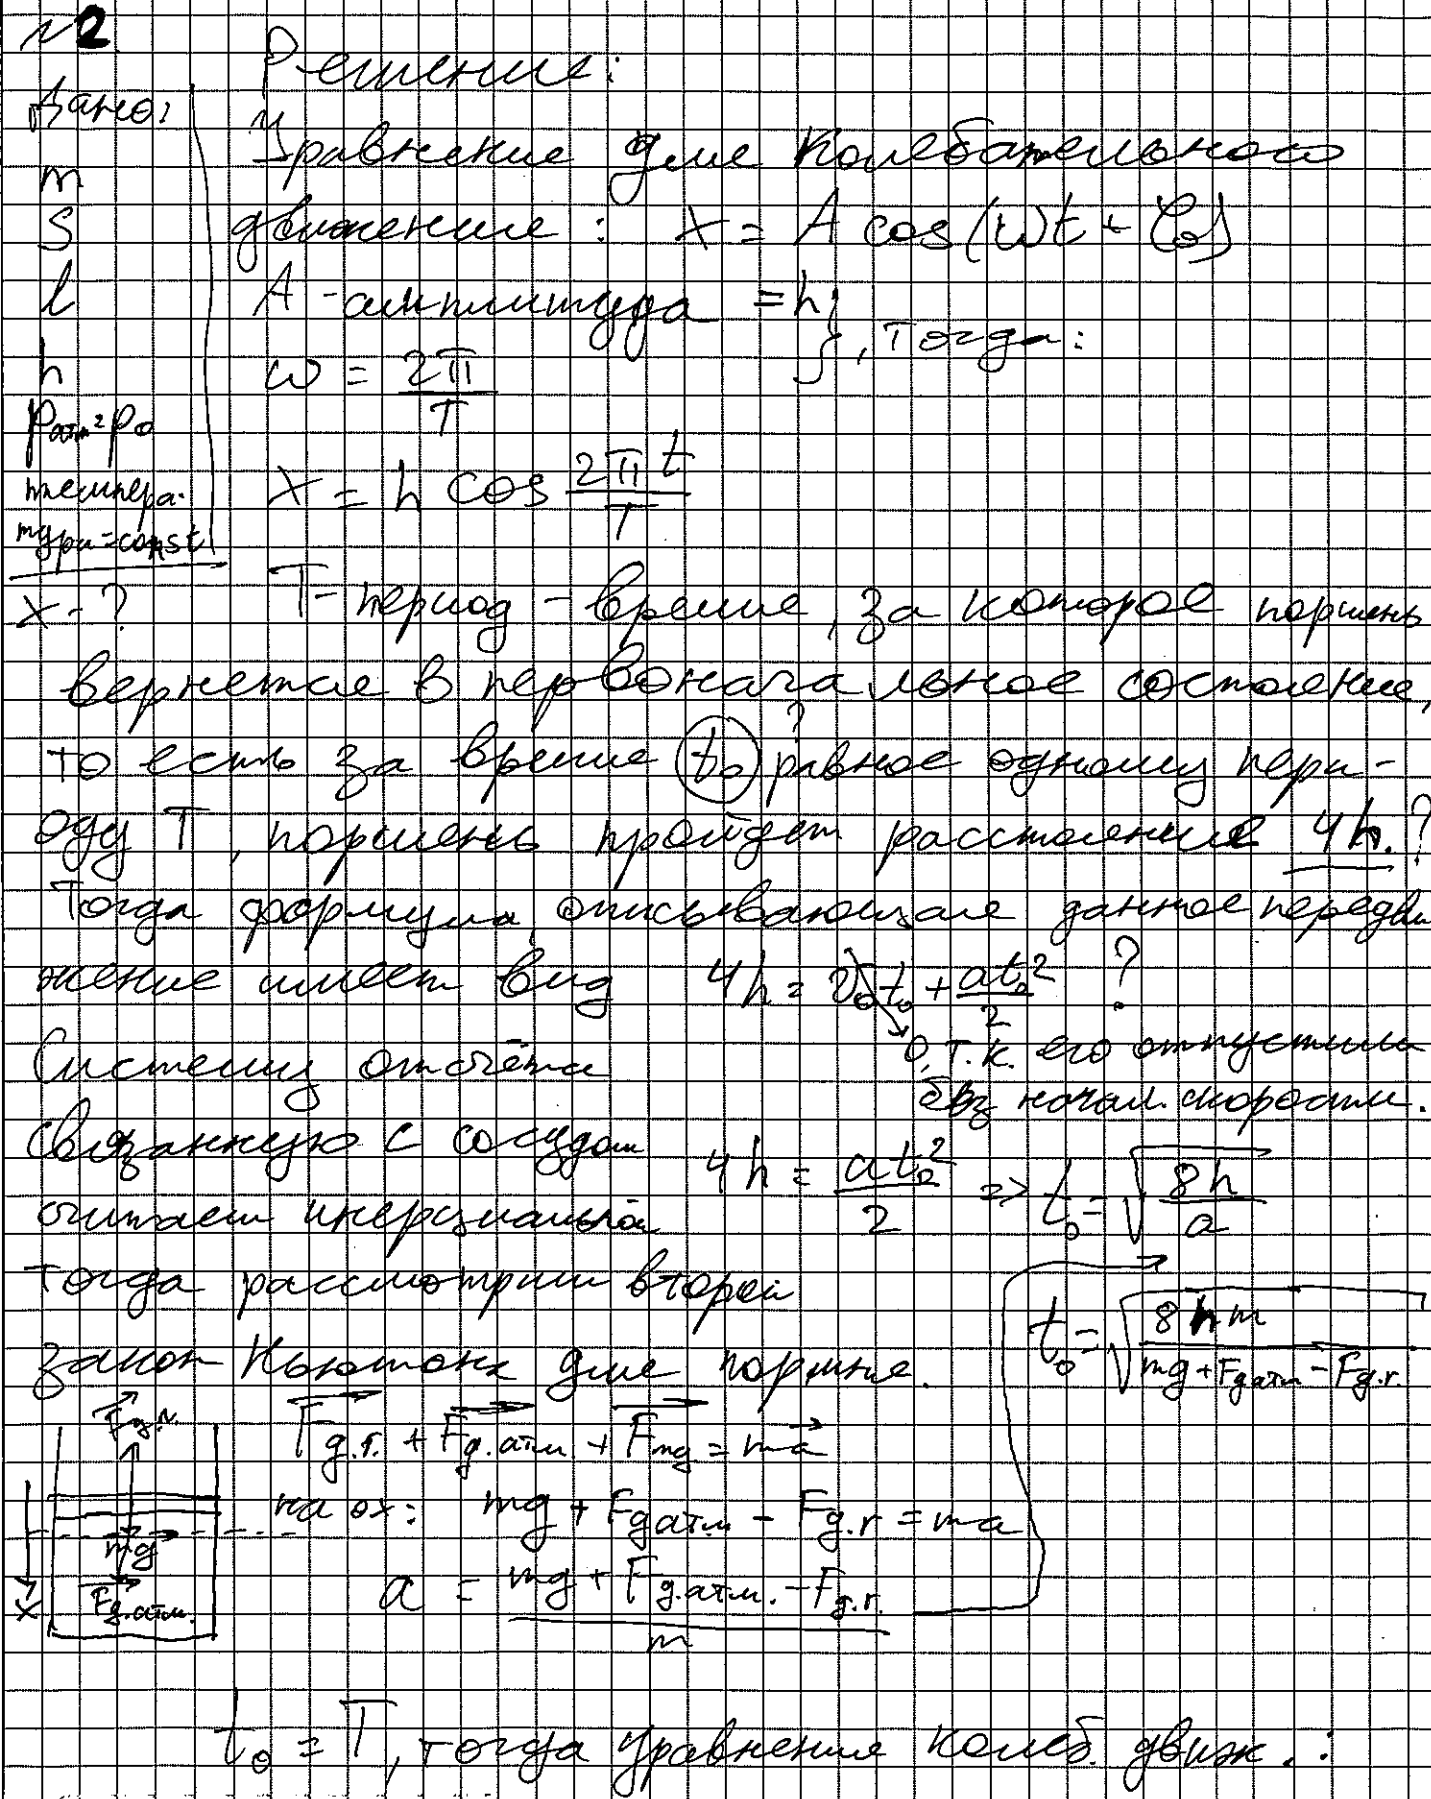 №2
Решение:
Дано:
Уравнение для колебательного
m
S
движения: x = A cos(ωt + φ₀)
l
A - амплитуда = h;
}, тогда:
h
ω = 2π/T
Pатм = P₀
x = h cos 2πt/T
темпера-
тура = const
x - ?
T - период - время, за которое поршень
вернется в первоначальное состояние,
то есть за время t₀ ? равное одному пери-
оду T, поршень пройдет расстояние 4h. ?
Тогда формула, описывающая данное передви
жение имеет вид 4h = v₀t₀ + at₀²/2 ?
0, т.к. его отпустили
без начал. скорости.
Систему отсчёта
связанную с сосудом
считаем инерциальной
4h = at₀²/2 => t₀ = √(8h/a)
тогда рассмотрим второй
закон Ньютона для поршня.
t₀ = √(8hm/(mg + Fд.атм - Fд.г.))
Fд.г.
Fд.г. + Fд.атм + Fmg = ma
на ox: mg + Fд.атм - Fд.г = ma
mg
Fд.атм.
x
a = (mg + Fд.атм. - Fд.г.)/m
t₀ = T, тогда уравнение колеб. движ.: